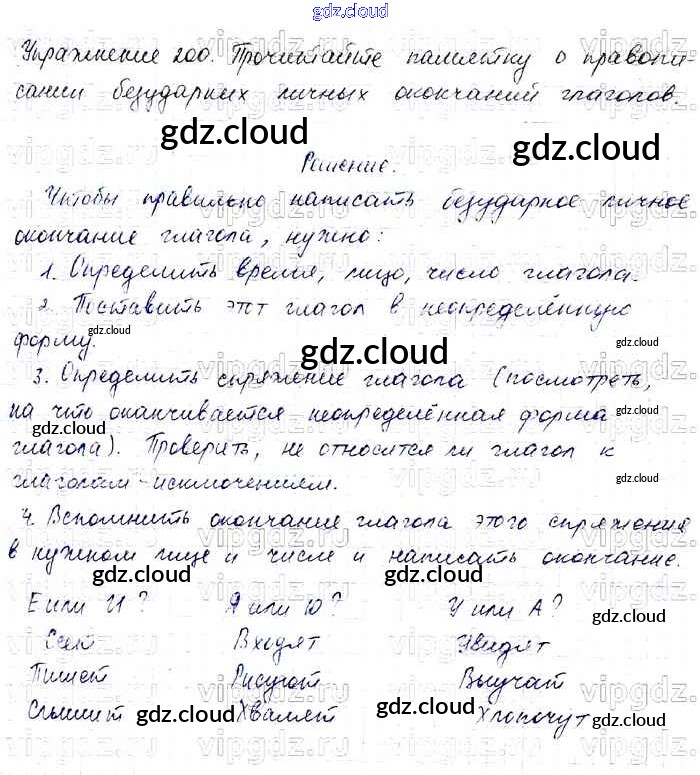 gdz.cloud
Упражнение 200. Прочитайте памятку о правопи-
сании безударных личных окончаний глаголов.
gdz.cloud gdz.cloud
Решение.
Чтобы правильно написать безударное личное
окончание глагола, нужно:
1. Определить время, лицо, число глагола.
2. Поставить этот глагол в неопределённую
форму.
gdz.cloud gdz.cloud gdz.cloud
3. Определить спряжение глагола (посмотреть,
на что оканчивается неопределённая форма
gdz.cloud gdz.cloud
глагола). Проверить, не относится ли глагол к
gdz.cloud
глаголам-исключениям.
4. Вспомнить окончание глагола этого спряжения
в нужном лице и числе и написать окончание.
gdz.cloud gdz.cloud gdz.cloud
Е или И? Я или Ю? У или А?
Сеет Входят Увидят
Пишет Рисуют Выучат
Слышит Хвалят Хлопочут
gdz.cloud gdz.cloud gdz.cloud